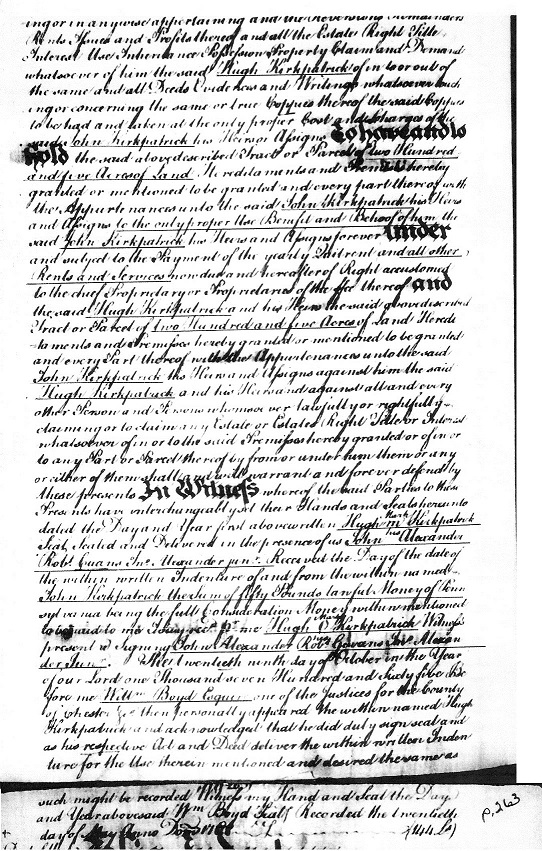 ing or in anywise appertaining and the Reversions Remainders
Rents Issues and Profits thereof and all the Estate Right Title
Interest Use Inheritance Possession Property Claim and Demand
whatsoever of him the said Hugh Kirkpatrick of in to or out of
the same and all Deeds Evidences and Writings whatsoever touch
ing or concerning the same or true Coppies thereof the said Coppies
to be had and taken at the only proper Cost and Charges of the
said John Kirkpatrick his Heirs or Assigns To have and to
hold the said above described Tract or Parcel of two Hundred
and five Acres of Land Hereditaments and Premises hereby
granted or mentioned to be granted and every part thereof with
the Appurtenances unto the said John Kirkpatrick his Heirs
and Assigns to the only proper Use Benefit and Behoof of him the
said John Kirkpatrick his Heirs and Assigns forever Under
and subject to the Payment of the yearly Quitrent and all other
Rents and Services now due and hereafter of Right accustomed
to the chief Proprietary or Proprietaries of the Fee thereof and
the said Hugh Kirkpatrick and his Heirs the said above described
Tract or Parcel of two Hundred and five Acres of Land Heredi
taments and Premisses hereby granted or mentioned to be granted
and every Part thereof with the Appurtenances unto the said
John Kirkpatrick his Heirs and Assigns against him the said
Hugh Kirkpatrick and his Heirs and against all and every
other Person and Persons whomsoever lawfully or rightfully
claiming or to claim any Estate or Estates Right Title or Interest
whatsoever of in or to the said Premisses hereby granted or of in or
to any Part or Parcel thereof by from or under him them or any
or either of them shall and will warrant and forever defend by
these presents In Witness whereof the said Parties to these
Presents have interchangeably set their Hands and Seals hereunto
dated the Day and Year first above written Hugh Mark Kirkpatrick
Seal Sealed and Delivered in the presence of us John his Alexander
Robt. Evans Jno. Alexander junr. Received the Day of the date of
the within written Indenture of and from the within named
John Kirkpatrick the Sum of fifty Pounds lawful Money of Penn
sylvania being the full Consideration Money within mentioned
to be paid to me I say recd. pr. me Hugh Mark Kirkpatrick Witness
present at Signing John Alexander Robt. Jno. Alexan
der Junr. The twentieth ninth day of October in the Year
of our Lord one Thousand seven Hundred and Sixty five Be
fore me Willm. Boyd Esquire one of the Justices for the County
of Chester &c then personally appeared the within named Hugh
Kirkpatrick and acknowledged that he did duly sign seal and
as his respective Act and Deed deliver the within written Inden
ture for the Use therein mentioned and desired the same as
such might be recorded Witness my Hand and Seal the Day
and Year abovesaid Wm Boyd Seal Recorded the twentieth
day of May Anno Dom
p. 263